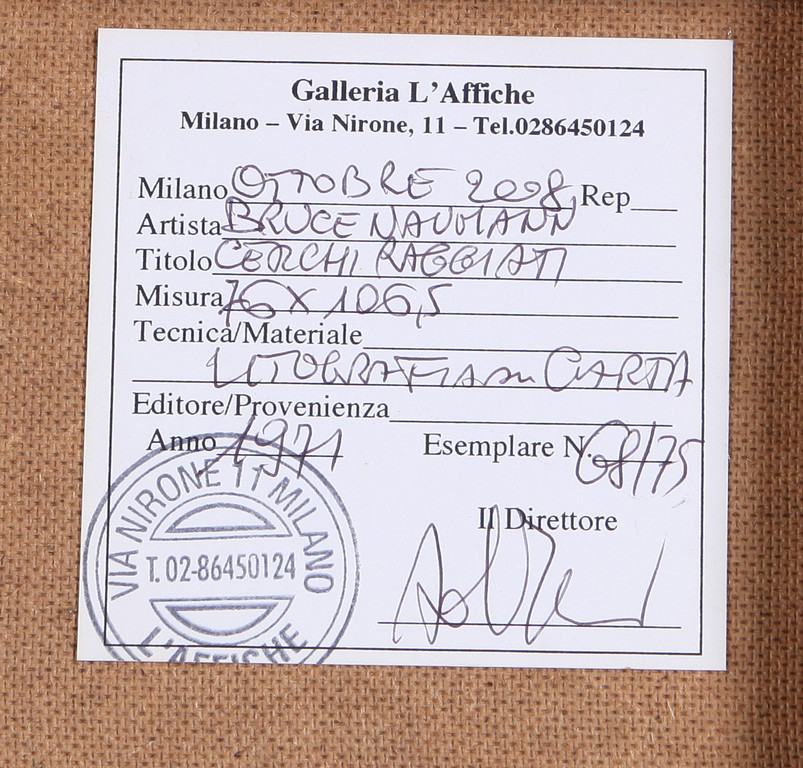 Galleria L'Affiche
Milano – Via Nirone, 11 – Tel.0286450124
Milano OTTOBRE 2008, Rep
Artista BRUCE NAUMANN
Titolo CERCHI RAGGIATI
Misura 76 X 106,5
Tecnica/Materiale
LITOGRAFIA su CARTA
Editore/Provenienza
Anno 1971 Esemplare N. 68/75
Il Direttore
VIA NIRONE 11 MILANO
T. 02-86450124
L'AFFICHE